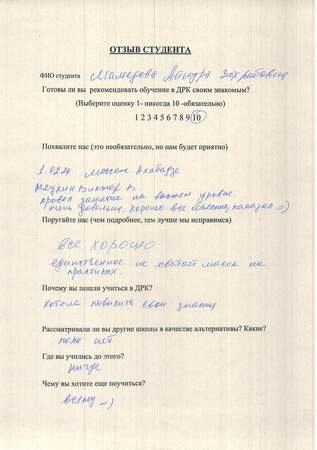 ОТЗЫВ СТУДЕНТА
ФИО студента Мамедова
Готовы ли вы рекомендовать обучение в ДРК своим знакомым?
(Выберите оценку 1- никогда 10 -обязательно)
1 2 3 4 5 6 7 8 9 10
Похвалите нас (это необязательно, но нам будет приятно)
Виктор
провел занятие на высшем уровне.
очень довольна, хорошо все объяснил, показал =)
Поругайте нас (чем подробнее, тем лучше мы исправимся)
все хорошо
единственное не хватает масла на
практиках.
Почему вы пошли учиться в ДРК?
хотела повысить свои знания
Рассматривали ли вы другие школы в качестве альтернативы? Какие?
пока нет
Где вы учились до этого?
нигде
Чему вы хотите еще поучиться?
всему =)